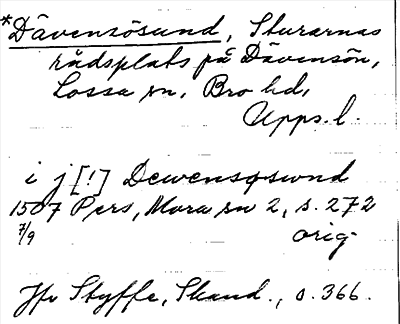 *Dävensösund, Sturarnas
rådsplats på Dävensön,
Lossa sn, Bro hd,
Upps. l.
i j [!] Dewensøswnd
1507 Pers, Mora sn 2, s. 272
7/9 orig.
Jfr Styffe, Skand., s. 366.